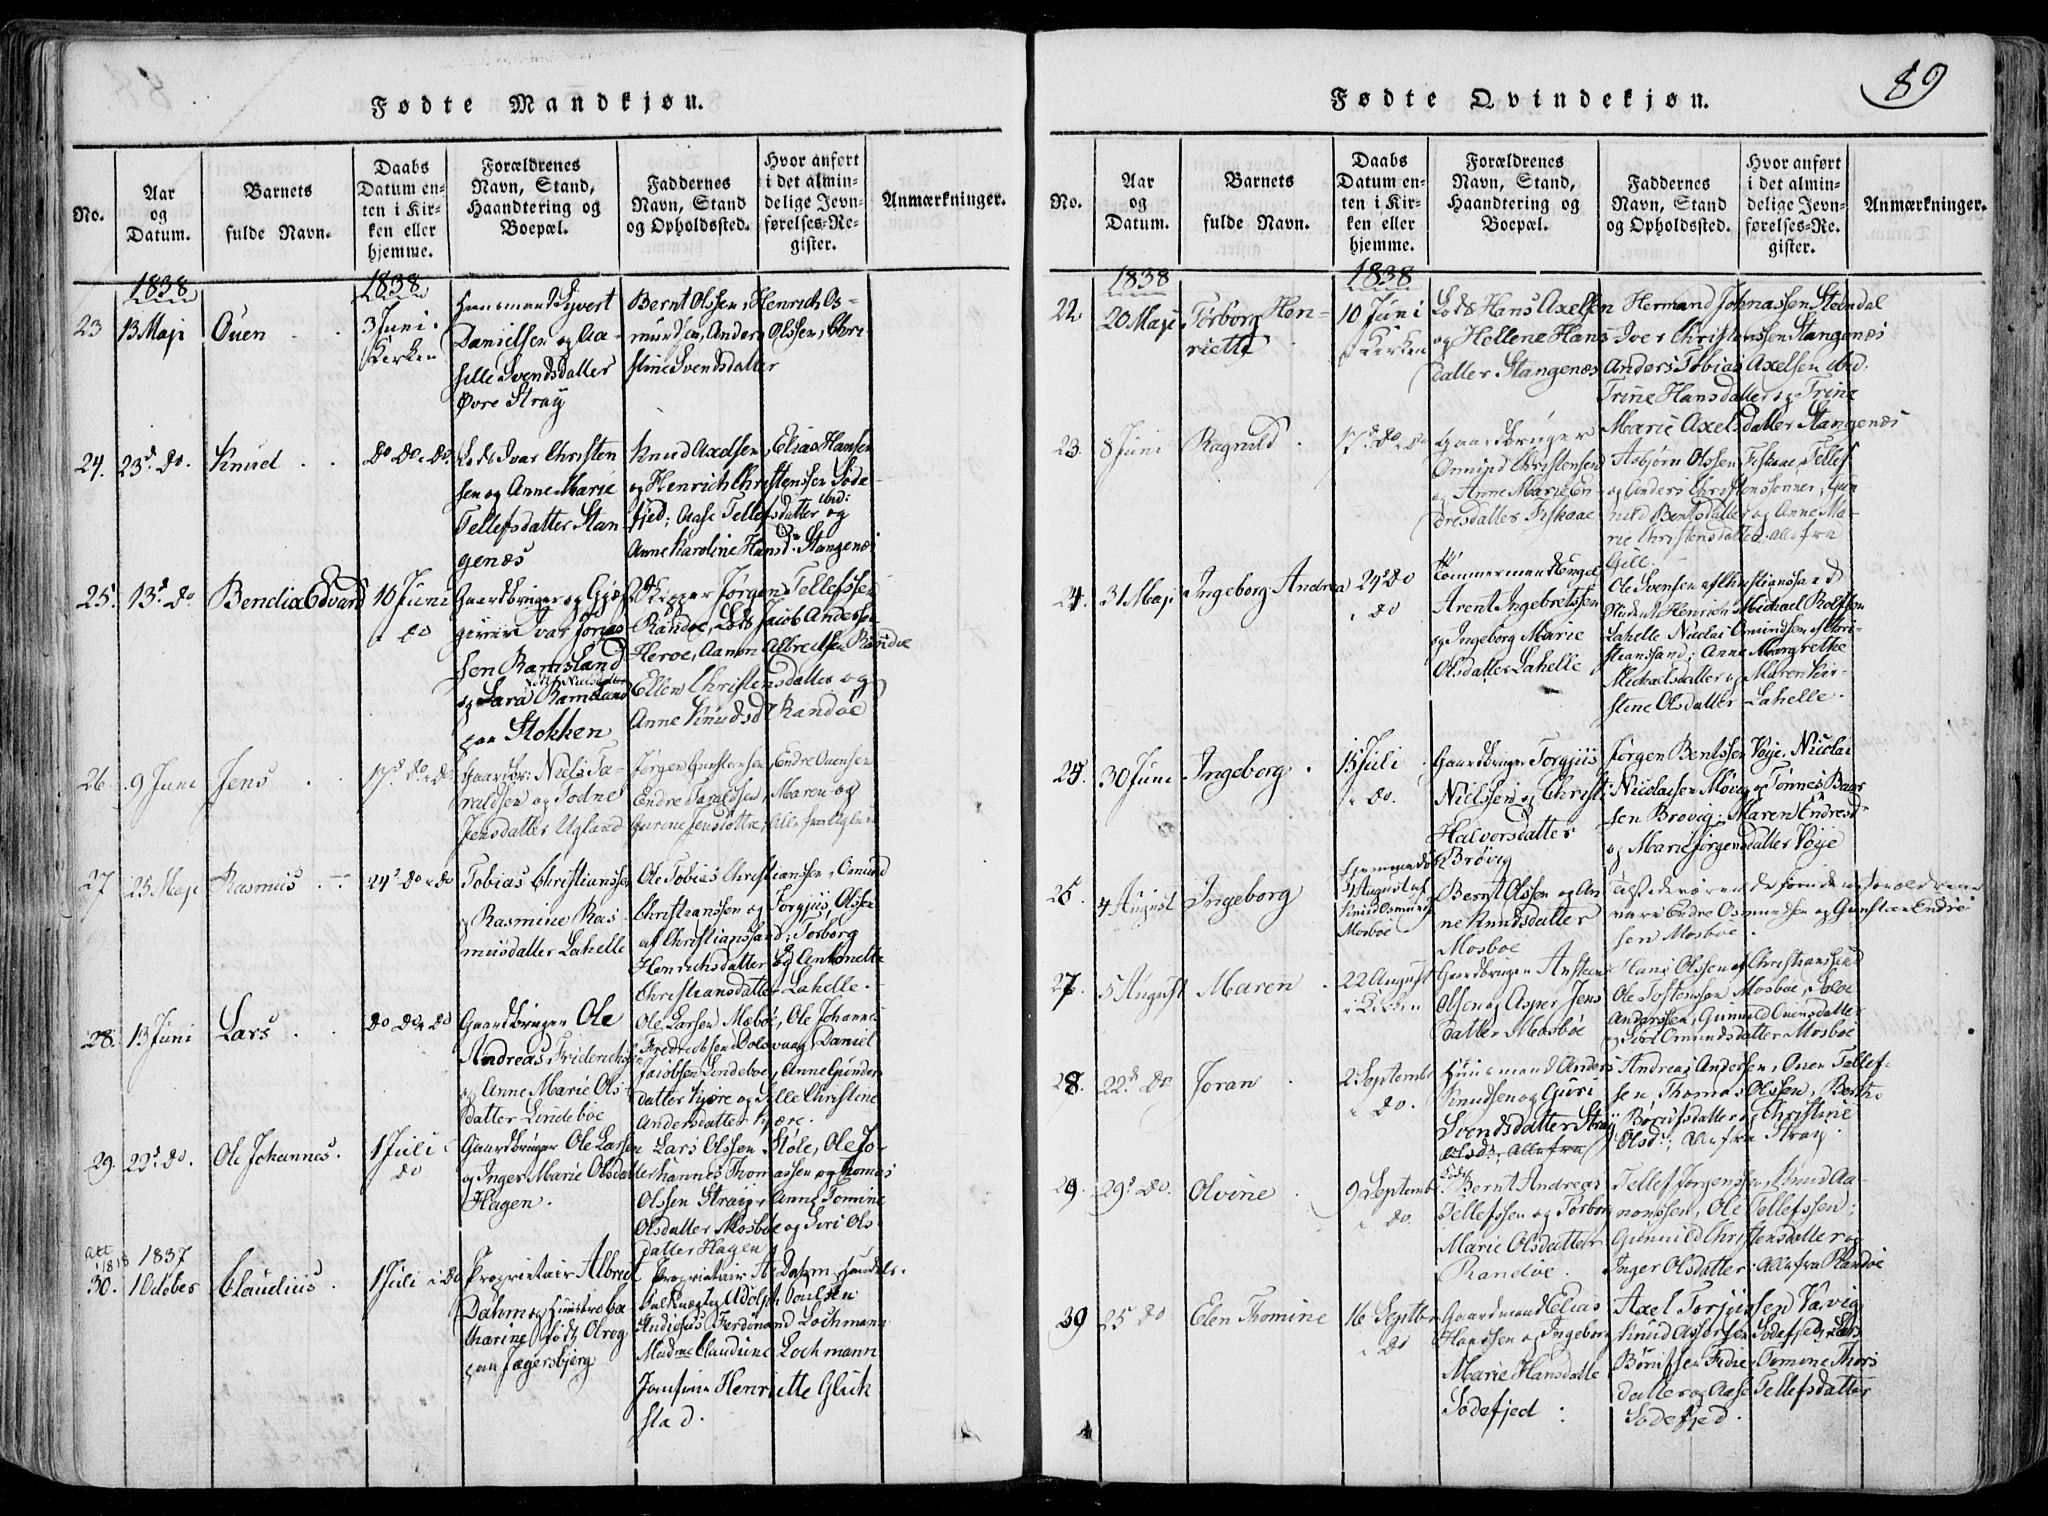 Fødte Mandkjøn.
No.
Aar
og
Datum.
Barnets
fulde Navn.
Daabs
Datum en-
ten i Kir-
ken eller
hjemme.
Forældrenes
Navn, Stand,
Haandtering og
Boepæl.
Faddernes
Navn, Stand
og Opholdssted.
Hvor anført
i det almin-
delige Jevn-
førelses-Re-
gister.
Anmærkninger.
1838
1838
23
13 Maji
Ouen
3 Juni
Kirken
Huusmand Syvert
Danielsen og Aa-
sille Svendsdatter
Øvre Stray
Bernt Olssen, Henrich Os-
mundsen, Anders Olssen, Chri-
stine Svendsdatter
24.
23d. do.
Knud
do do. do.
Lods Ivar Christen
sen og Anne Marie
Tellefsdatter Stan
genæs
Knud Axelsen, Elias Hansen
og Henrich Christenssen Söde-
fjed; Aase Tellefsdatter ibid:
og
Anne Karoline Hansd. Stangenæs
25.
13d. do
Bendix Edvard
10 Juni
i do
Gaardbruger og
Ivar Jonas
sen Ramsland
og Sara Ramsland
paa Stokken
Jørgen Tellefssen
Randøe, Lods Jacob Anderssen
Herøe, Aanon Albrectsen Randøe
Ellen Christensdatter og
Anne Knudsd Randøe
26.
9 Juni
Jens
17d do i do
Gaardbr: Niels Ta-
raldsen og Todne
Jensdatter Ugland
Jørgen Gunstensen, Endre Ouensen
Endre Taraldsen, Maren og
Gurine Jensdøttre, Alle fra Ugland
27
25 Maji
Rasmus
24d do i do
Tobias Christianssen
og Rasmine Ras-
musdatter Lahelle
Ole Tobias Christianssen, Omund
Christianssen og Torgjus Olssen
af Christianssand; Torborg
Henrichsdatter og Antonette
Christiansdatter Lahelle.
28.
13 Juni
Lars
do do i do
Gaardbrugen Ole
Andreas Friderichsen
og Anne Marie Ols-
datter Lindeboe
Ole Larsen Mæbøe, Ole Johannes
Daniel
Jacobsen Lindeboe, Anne Gunders
datter Kjære og Sille Christine
Andersdatter Kjære.
29.
22d. do.
Ole Johannes.
1 Juli i
do
Gaardbruger Ole Larsen
og Inger Marie Olsdatter
Hagen.
Lars Olssen Støle, Ole Jo-
hannes Thomassen og Thomas
Olssen Stray, Anne Tomine
Olsdatter Mosbøe og Siri Ols
datter Hagen
1837
30.
1 October
Claudius.
1 Juli i do
Proprietair Albrect
Dahm og Hustro Ca
tharine født Olrog
paa Jægersbjerg
Proprietair A. Dahm, Handels-
fuldmægtig Adolph Poulsen
Studiosus Ferdinand Lochmann
Madme Claudine Lochmann
Jomfrue Henriette Glück
stad.
89
Fødte Qvindekjøn.
No.
Aar
og
Datum.
Barnets
fulde Navn.
Daabs
Datum en-
ten i Kir-
ken eller
hjemme.
Forældrenes
Navn, Stand,
Haandtering og
Boepæl.
Faddernes
Navn, Stand
og Opholdssted.
Hvor anført
i det almin-
delige Jevn-
førelses-Re-
gister.
Anmærkninger.
1838
1838
22
20 Maji
Torborg Hen-
riette
10 Juni
i Kirken
Lods Hans Axelsen
og Hellene Hans
datter Stangenæs
Hermand Johnassen Steendal
Iver Christenssen Stangenæs
Anders Tobias Axelsen ibid.
Trine Hansdatter og Trine
Marie Axelsdatter Stangenæs
23.
8 Juni
Ragnild
17d. do i do
Gaardbruger
Omund Christensen
og Anne Marie En-
dresdatter Fiskaae
Asbjørn Olssen Fiskaae, Tellef
og Anders Christenssønner, Gun
nild Berntsdatter og Anne Ma-
rie Christensdatter. Alle fra
Gill.
24.
31 Maji
Ingeborg Andrea
24d do
i do
Tømmermand Engel
Arent Ingebretssen
og Ingeborg Marie
Olsdatter Lahelle
Ole Svensen af Christianssand
Student Henrich Michael Rolfssen
Lahelle Nicolai Omundsen af Chri-
stianssand; Anne Margrethe
Michaelsdatter og Maren Kir-
stine Olsdatter Lahelle.
25.
30 Juni
Ingeborg.
15 Juli
i do.
Gaardbruger Torgjus
Nielssen og Christi
Halvorsdatter
Brøvig
Jørgen Bentssen Vøje, Nicolai
Nicolaisen Møvig og Tønnes Baar
sen Brøvig; Maren Endresd
og Marie Jørgensdatter Vøje
25.
4 August
Ingeborg
Hjemmedøbt
4 August af
Knud Osmunds
Mosboe
Bernt Olssen og An
ne Knudsdatter
Mosboe
Tilstedeværende foruden Forældrene
vare Endre Osmundsen og Gunsten Endre
sen Mosboe.
27.
5 August
Maren
22 August
i Kirken
Gaardbrugen Ansteen
Olsen og Asper Jens
datter Mosbøe
Hans Olssen af Christianssand
Ole Tostenssen Mosboe, Salve
Anderssen, Gunuld Ouensdatter
og Siri Omundsdatter Mosboe
28.
22d do
Joran
2 Septembr
i do.
Huusmand Anders
Knudsen og Guri
Svendsdatter Stray
Olsd:, Alle fra
Andreas Andersen, Ouen Tellef-
sen, Thomas Olssen, Berthe
Børufsdatter og Christine
Olsd:, Alle fra Stray.
29.
29d do.
Olvine
9 Septembr
i do.
Lods
Bernt Andreas
Tellefssen og Torborg
Marie Olsdatter
Randøe.
Tellef Jørgenssen, Knud Aa-
nonssen, Ole Tellefssen;
Gunnild Christensdatter og
Inger Olsdatter. Alle fra Randøe
30
25 do
Elen Thomine
16 Septbr
i do
Gaardmand Elias
Hanssen og Ingeborg
Marie Hansdatter
Sødefjed
Axel Torjussen Vaavig
Knud Assersen Sødefjed, Lars
Børuffsen Fidie, Tomine Thors
datter og Aase Tellefsdatter
Sødefjed.